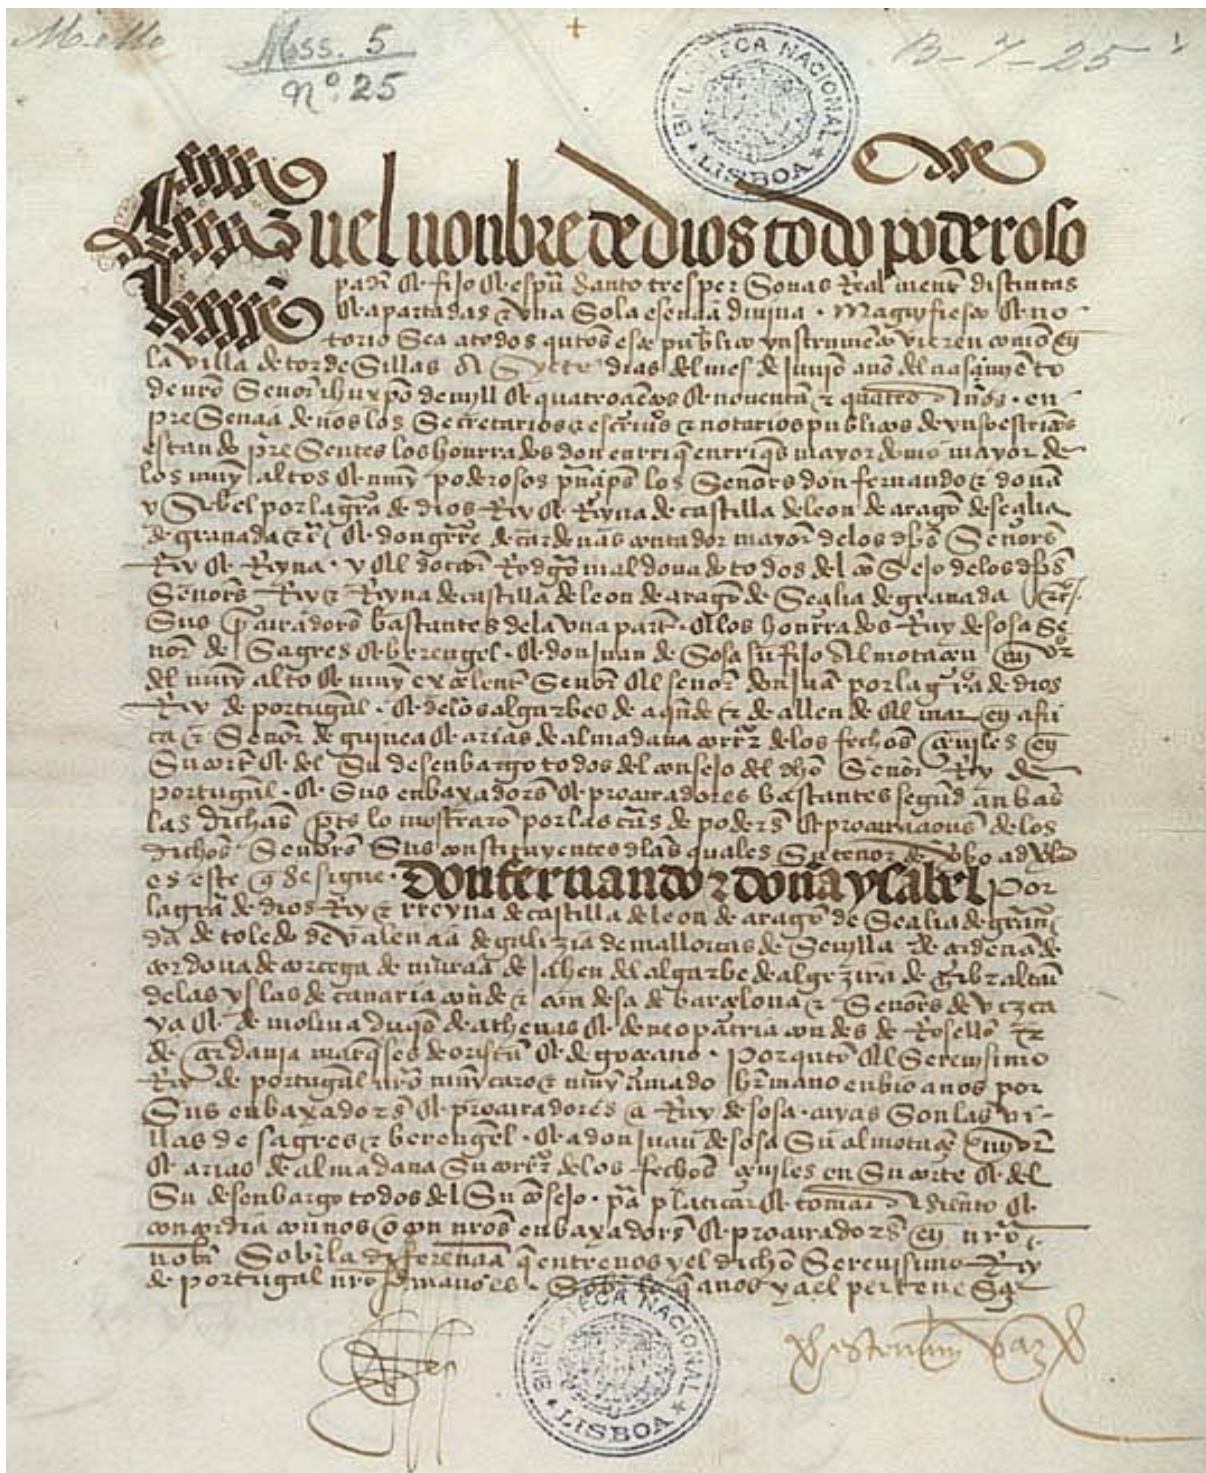 Mello
Mss. 5
Nº. 25
B-7-25
BIBLIOTECA NACIONAL
LISBOA
En el nonbre de dios todo poderoso
padre & fijo & espũ santo tres personas Real mente distintas
& apartadas & vna Sola esencia diuina. Magnyfiesto & no
torio Sea a todos quãtos este publico ynstrumẽto vieren como en
la villa de tordesillas A Syete dias del mes de Junjo año del nasçimyẽto
de nr̃o Señor ihũ xp̃o de mjll & quatroçiẽtos & noventa & quatro Años. en
presençia de nos los Secretarios & escriuãos & notarios publicos de yuso escriptos
estando presentes los honrrados don enrriq̃ enrriq̃s mayordomo mayor de
los muy altos & muy poderosos prinçipes los Señores don fernando & doña
ysabel por la grã de dios Rey & Reyna de castilla de leon de aragõ de seçilia
de granada & don de cardenas contador mayor de los Señores
Rey & Reyna. y el doctor maldonado todos del cõsejo de los
Señores Rey & Reyna de castilla de leon de aragõ de Seçilia de granada
Sus procuradores bastantes de la vna parte. & los honrrados Ruy de sosa Se
ñor de Sagres & berengel. & don Juan de Sosa su fijo Almotaçen
del muy alto & muy exçelente Señor el señor don Juã por la grã de dios
Rey de portugal. & de los algarbes de aquẽde & de allende el mar en afri
ca & Señor de guinea & arias de almadana de los fechos çeuiles en
Su corte & del Su desenbargo todos del consejo del dho Señor Rey de
portugal. & Sus enbaxadores & procuradores bastantes segũd anbas
las dichas ptes lo mostrarõ por las de poderes & procuraçiones de los
dichos Señores Sus constituyentes de las quales Su tenor de
es este q̃ se sigue. Don fernando & doña ysabel por
la grã de dios Rey & rreyna de castilla de leon de aragõ de Seçilia de granã
da de toledo de valençia de galizia de mallorcas de Seuylla de çerdeña de
cordoua de corçega de murçia de Jahen del algarbe de algezira de gibraltar
de las yslas de canaria conde & condesa de barçelona & Señores de vizca
ya & de molina duq̃s de athenas & de neopatria condes de Rosellõ &
de çerdania marq̃ses de oristã & de goçeano. Por quãto el Serenisimo
Rey de portugal nr̃o muy caro & muy amado hermano enbio a nos por
Sus enbaxadores & procuradores a Ruy de sosa. cuyas Son las vi-
llas de sagres & berengel. & a don Juan de sosa Su almotaçen
& arias de almadana Su de los fechos çeuiles en Su corte & del
Su desenbargo todos del Su cõsejo. pa platicar & tomar Asiento &
concordia con nos o con nr̃os enbaxadores & procuradores en nr̃o
nonbre Sobre la diferençia q̃ entre nos y el dicho Serenisimo Rey
de portugal nr̃o hermano es. Sobre lo q̃ a nos y a el perteneçe
BIBLIOTECA NACIONAL
LISBOA
vaz